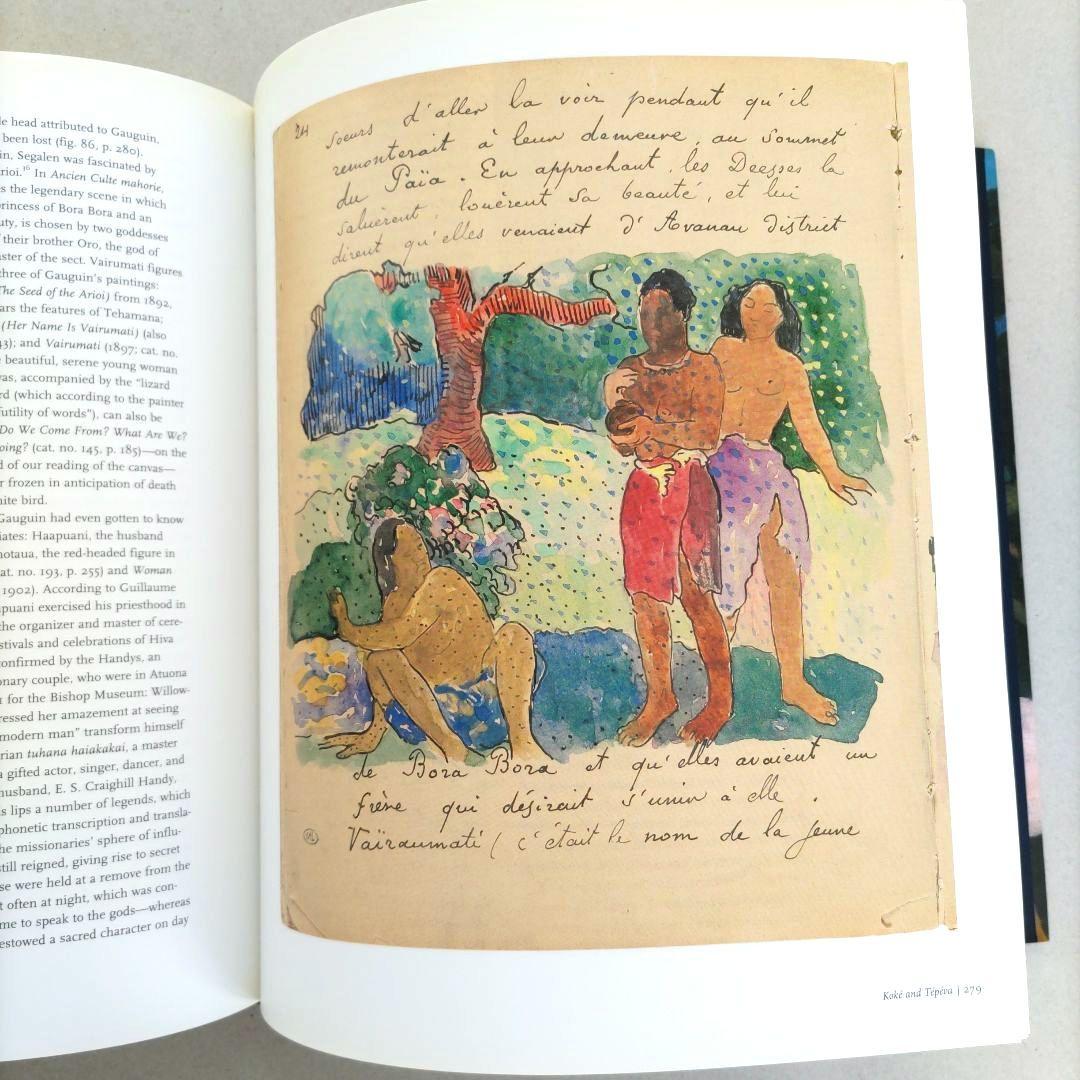 le head attributed to Gauguin,
been lost (fig. 86, p. 280).
in, Segalen was fascinated by
rioi.¹⁶ In Ancien Culte mahorie,
es the legendary scene in which
princess of Bora Bora and an
uty, is chosen by two goddesses
f their brother Oro, the god of
aster of the sect. Vairumati figures
three of Gauguin's paintings:
The Seed of the Arioi) from 1892,
ars the features of Tehamana;
(Her Name Is Vairumati) (also
43); and Vairumati (1897; cat. no.
e beautiful, serene young woman
vas, accompanied by the "lizard
rd (which according to the painter
futility of words"), can also be
Do We Come From? What Are We?
oing? (cat. no. 145, p. 185)—on the
d of our reading of the canvas—
r frozen in anticipation of death
hite bird.
Gauguin had even gotten to know
iates: Haapuani, the husband
hotaua, the red-headed figure in
at. no. 193, p. 255) and Woman
1902). According to Guillaume
puani exercised his priesthood in
the organizer and master of cere-
stivals and celebrations of Hiva
confirmed by the Handys, an
onary couple, who were in Atuona
1 for the Bishop Museum: Willow-
ressed her amazement at seeing
"modern man" transform himself
rian tuhana haiakakai, a master
a gifted actor, singer, dancer, and
husband, E. S. Craighill Handy,
is lips a number of legends, which
phonetic transcription and transla-
he missionaries' sphere of influ-
still reigned, giving rise to secret
se were held at a remove from the
t often at night, which was con-
me to speak to the gods—whereas
estowed a sacred character on day
24
soeurs d'aller la voir pendant qu'il
remonterait à leur demeure, au sommet
du Païa. En approchant, les Deesses la
saluèrent, louèrent sa beauté, et lui
dirent qu'elles venaient d'Avanau district
de Bora Bora et qu'elles avaient un
frère qui désirait s'unir à elle.
Vaïraumati (c'était le nom de la jeune
Koké and Tépéva | 279